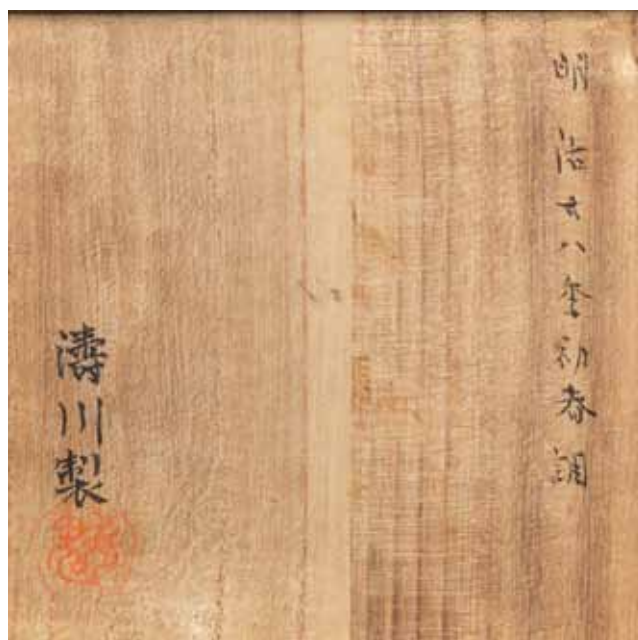 明治廿八年初春調
濤川製